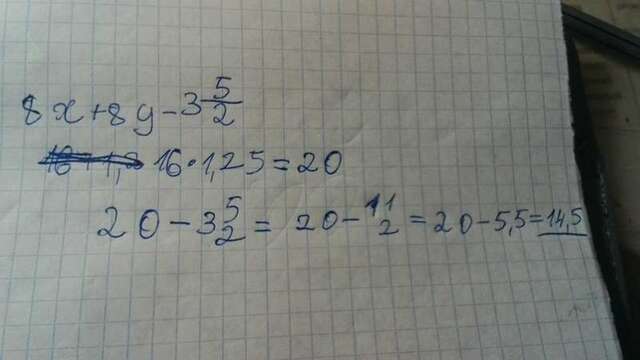 8x+8y-3 5/2
16·1,25=20
20-3 5/2= 20-11/2=20-5,5=14,5